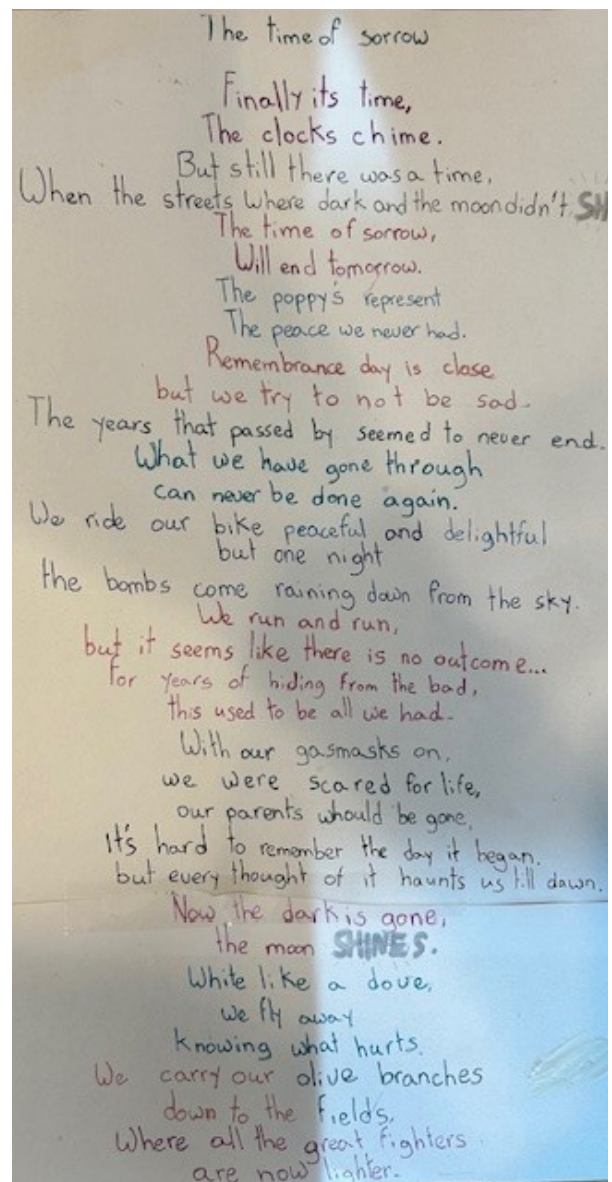 The time of sorrow
Finally its time,
The clocks chime.
But still there was a time,
When the streets where dark and the moon didn't SH
The time of sorrow,
Will end tomorrow.
The poppy's represent
The peace we never had.
Remembrance day is close
but we try to not be sad.
The years that passed by seemed to never end.
What we have gone through
can never be done again.
We ride our bike peaceful and delightful
but one night
the bombs come raining down from the sky.
We run and run,
but it seems like there is no outcome...
for years of hiding from the bad,
this used to be all we had.
With our gasmasks on,
we were scared for life,
our parents whould be gone,
It's hard to remember the day it began.
but every thought of it haunts us till dawn.
Now the dark is gone,
the moon SHINES.
White like a dove,
we fly away
knowing what hurts.
We carry our olive branches
down to the fields,
Where all the great fighters
are now lighter.